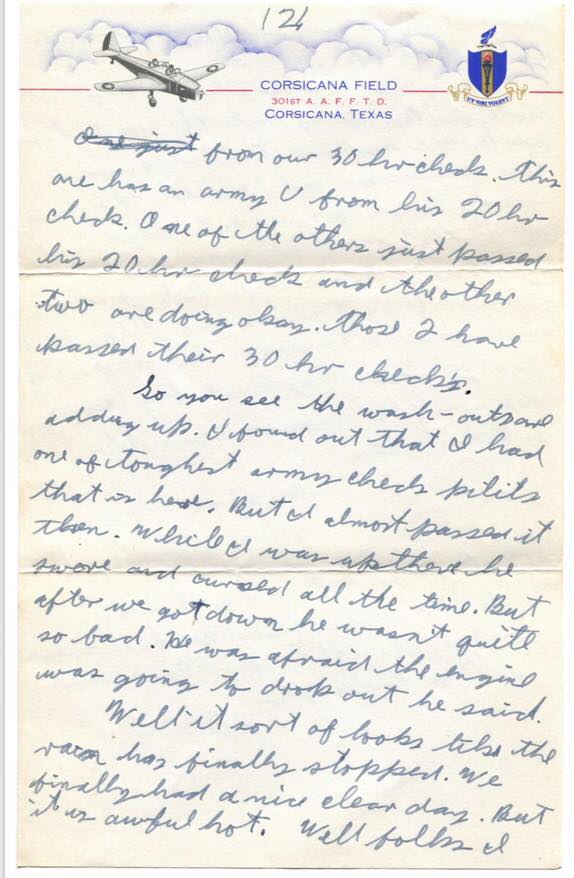 121
CORSICANA FIELD
301ST A. A. F. F. T. D.
CORSICANA, TEXAS
UT VIRI VOLENT
One just from our 30 hr check. This
one has an army U from his 20 hr
check. One of the others just passed
his 20 hr check and the other
two are doing okay. Those 2 have
passed their 30 hr checks.
So you see the wash-outs are
adding up. I found out that I had
one of toughest army check pilits
that is here. But I almost passed it
then. While I was up there he
swore and cursed all the time. But
after we got down he wasn't quite
so bad. He was afraid the engine
was going to drop out he said.
Well it sort of looks like the
rain has finally stopped. We
finally had a nice clear day. But
it is awful hot. Well folks I